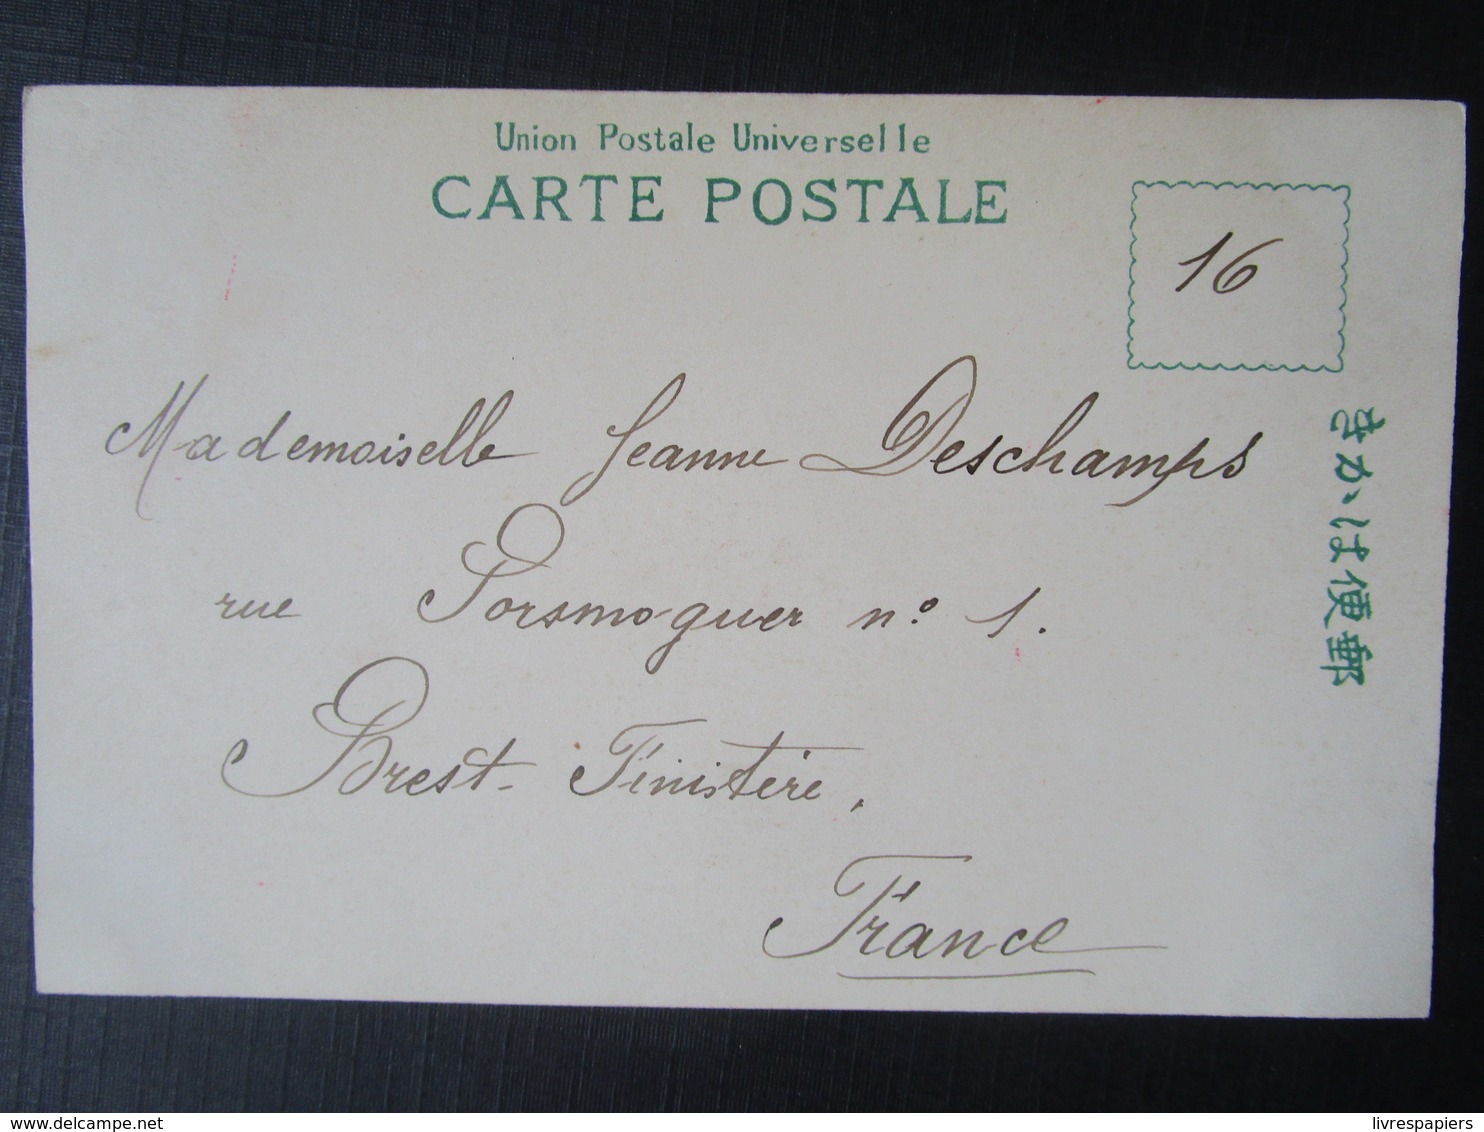 Union Postale Universelle
CARTE POSTALE
16
Mademoiselle Jeanne Deschamps
rue Porsmoguer n° 1.
Brest - Finistère,
France
きかは便郵
livrespapiers
delcampe.net